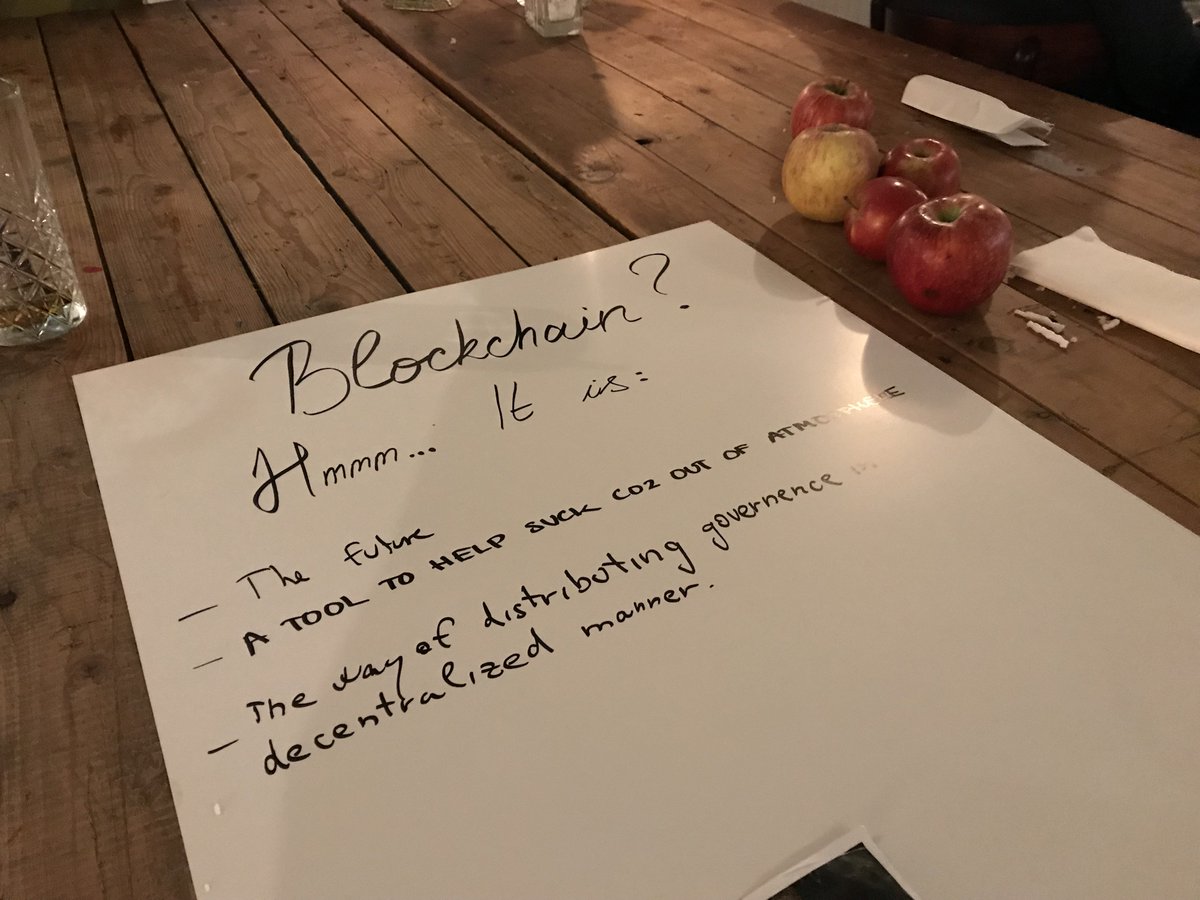 Blockchain?
Hmmm... It is:
- The future
- A TOOL TO HELP SUCK CO2 OUT OF ATMOSPHERE
- The way of distributing governence in
decentralized manner.